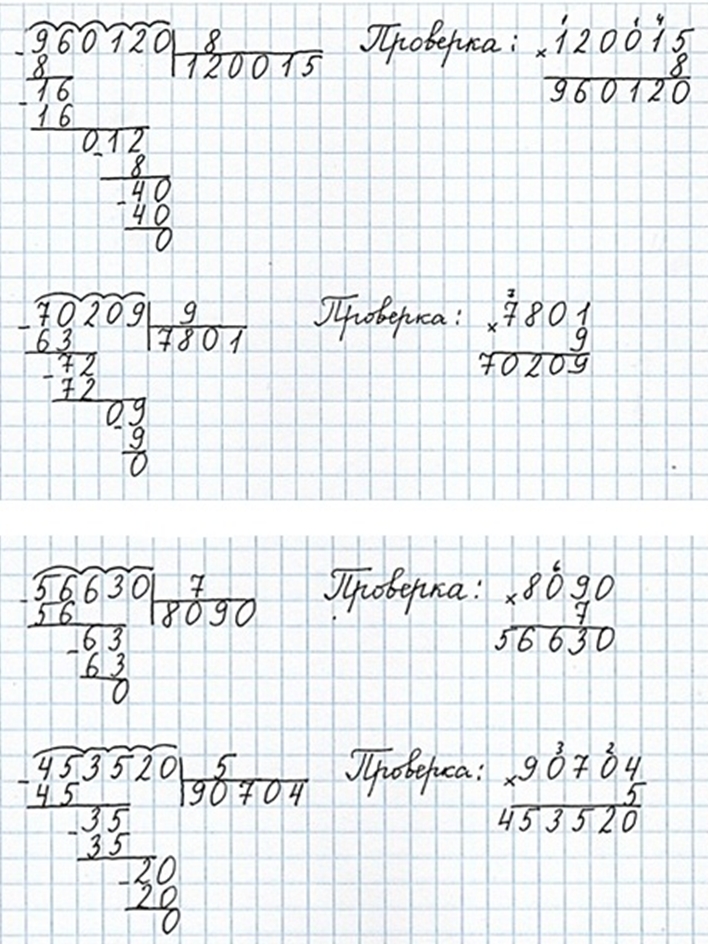 960120 8 Проверка: ¹ ¹ ⁴
- 8 120015 × 120015
16 8
- 16 960120
012
- 8
40
- 40
0
70209 9 Проверка: ⁷
- 63 7801 × 7801
72 9
- 72 70209
09
- 9
0
56630 7 Проверка: ⁶
- 56 8090 × 8090
63 7
- 63 56630
0
453520 5 Проверка: ³ ²
- 45 90704 × 90704
35 5
- 35 453520
20
- 20
0